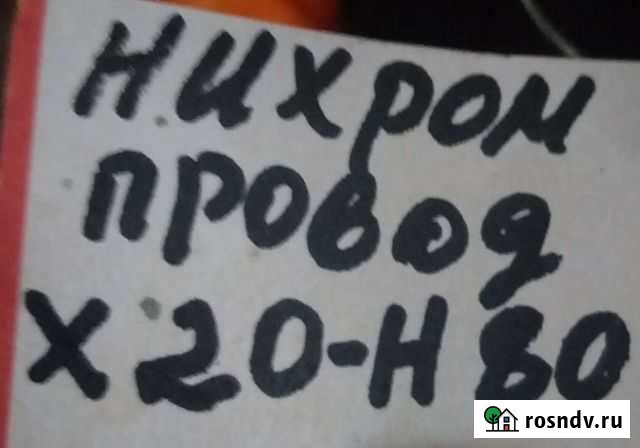 нихром
провод
х20-н80
rosndv.ru